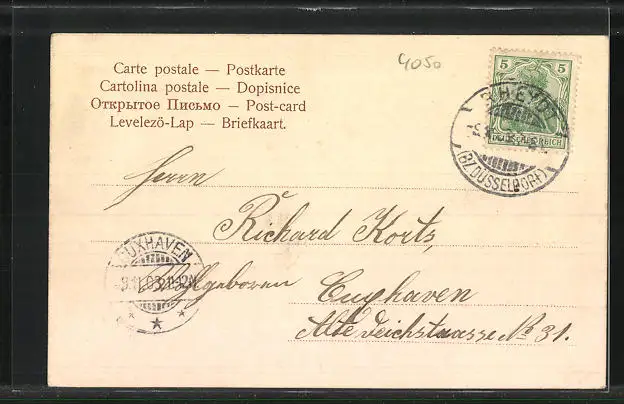 4050
Carte postale — Postkarte
Cartolina postale — Dopisnice
Открытое Письмо — Post-card
Levelező-Lap — Briefkaart.
5 5
DEUTSCHES REICH
RHEYDT
(BZ. DÜSSELDORF)
Herrn
Richard Korts,
CUXHAVEN
3.11.03.11-12N
Wohlgeboren
Cuxhaven
Alte Deichstrasse No 31.